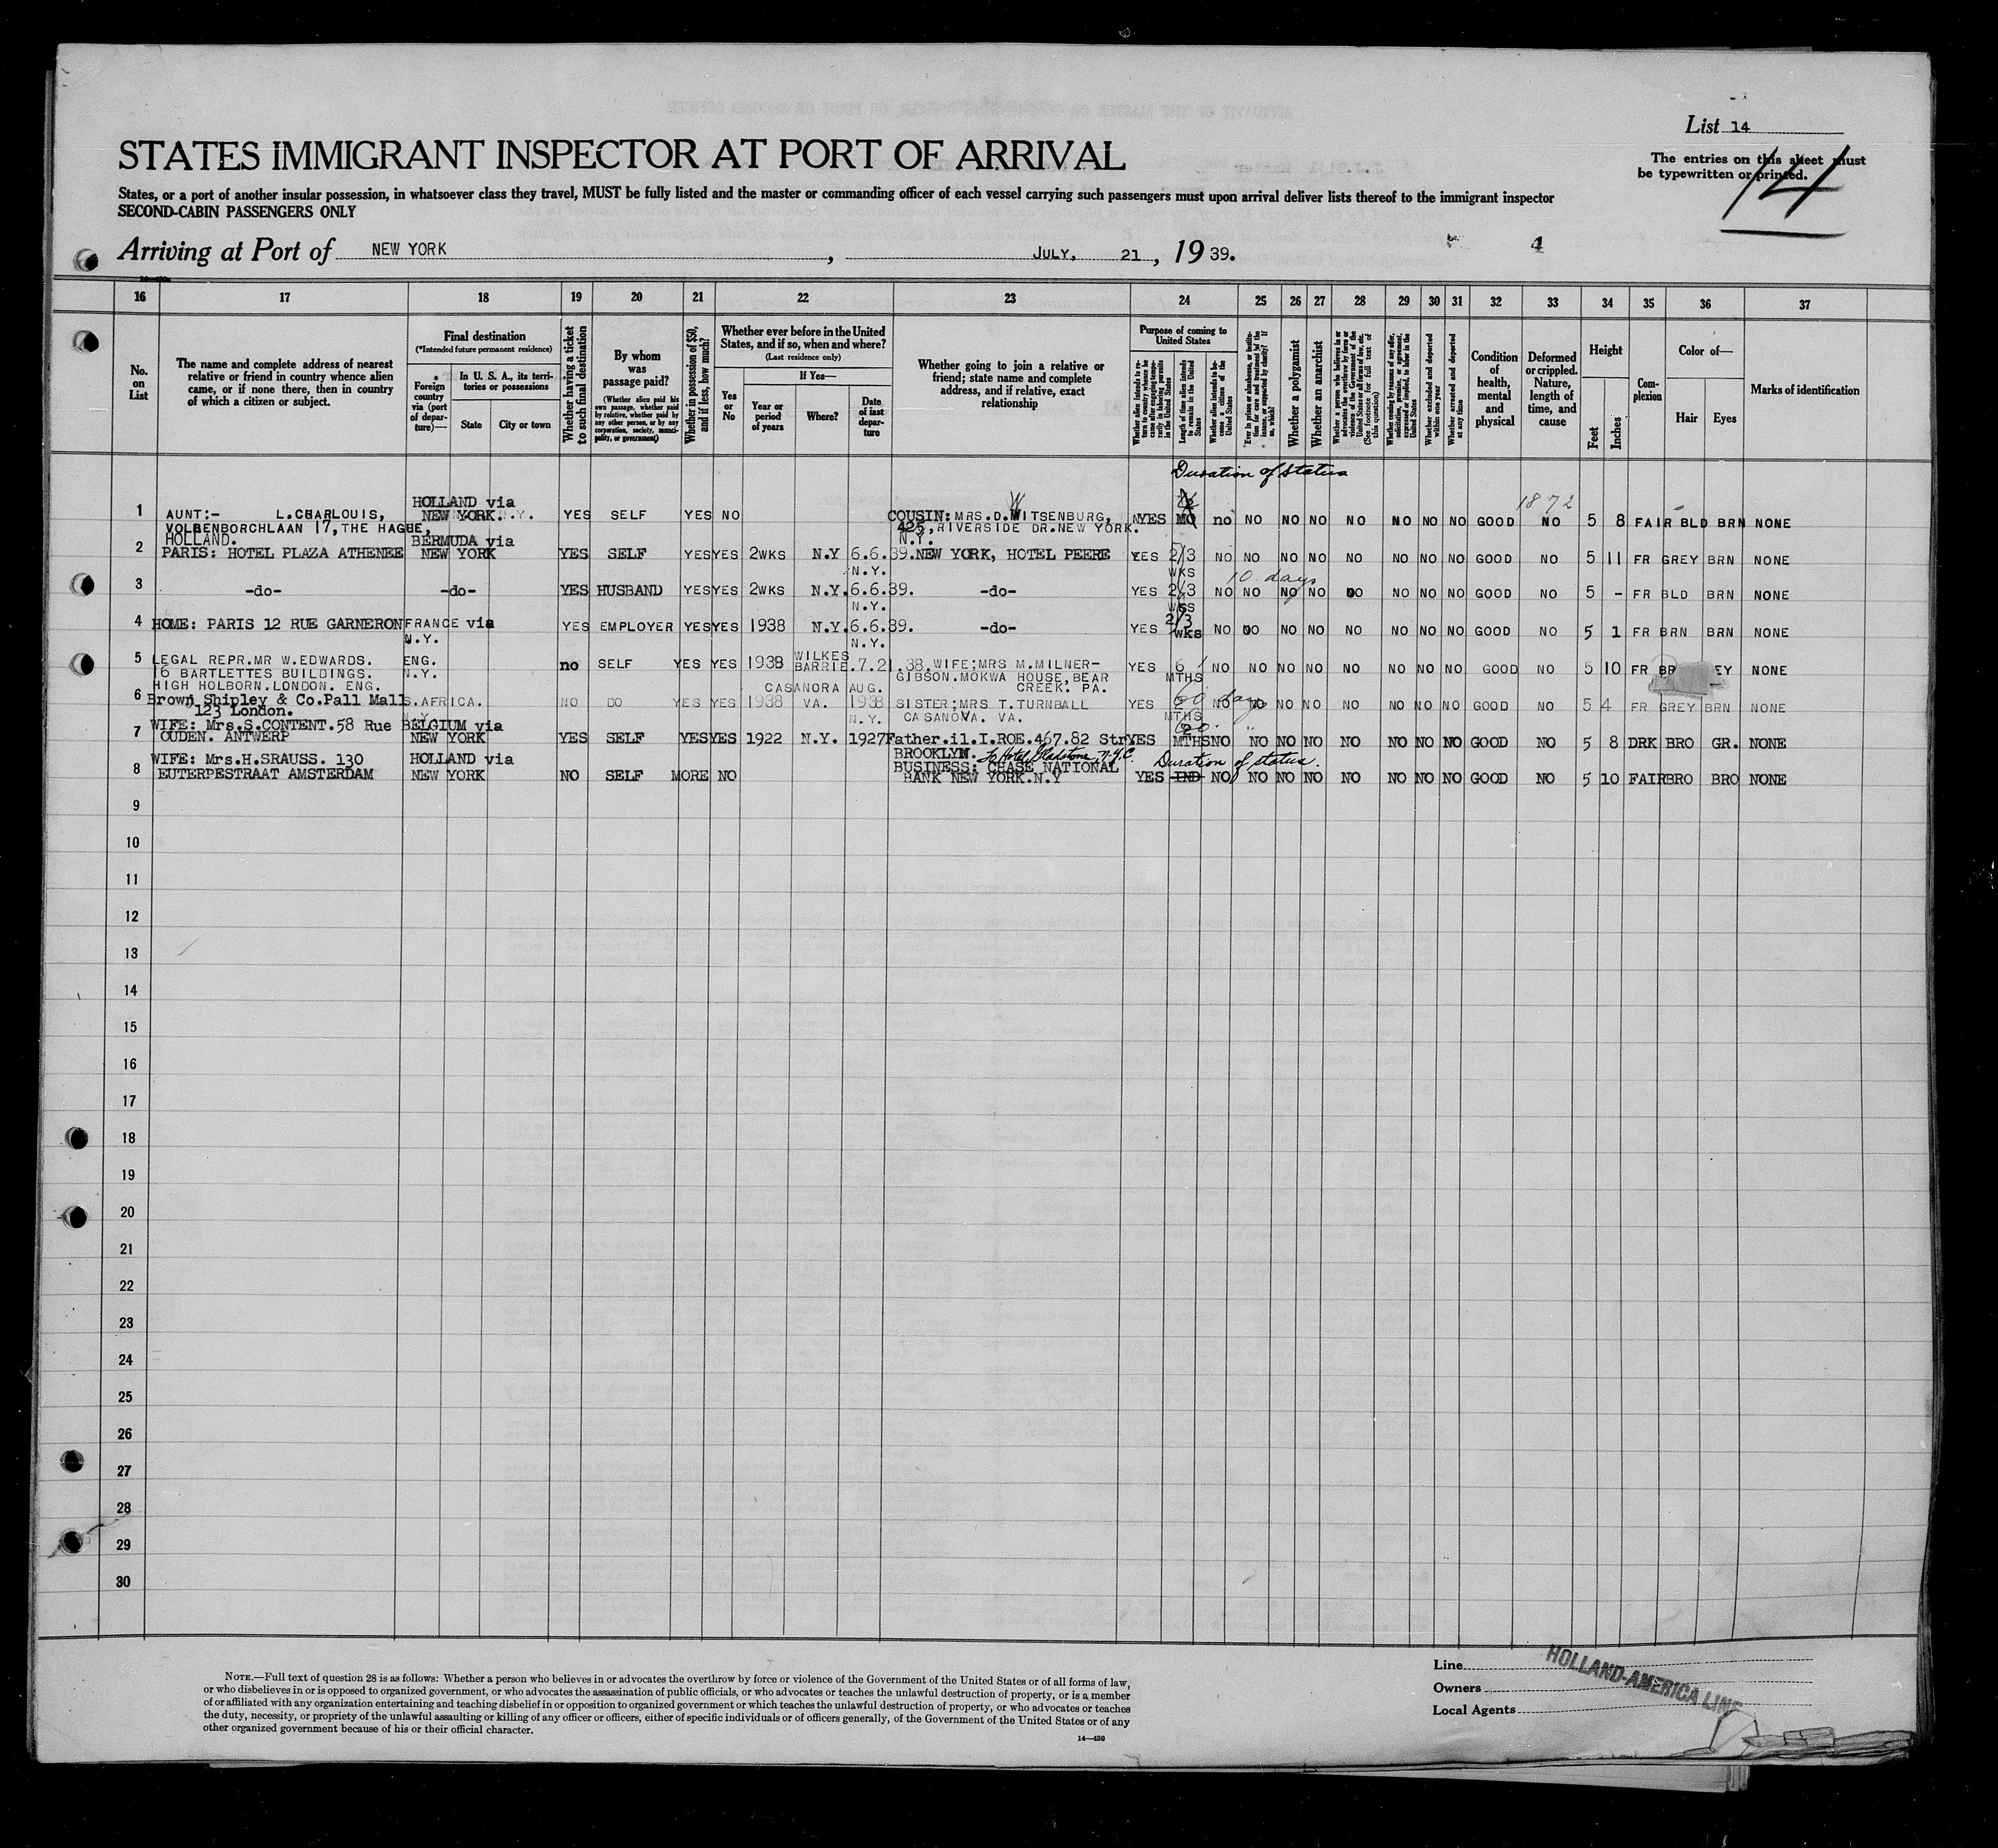 List 14
STATES IMMIGRANT INSPECTOR AT PORT OF ARRIVAL
The entries on this sheet must
be typewritten or printed.
14
States, or a port of another insular possession, in whatsoever class they travel, MUST be fully listed and the master or commanding officer of each vessel carrying such passengers must upon arrival deliver lists thereof to the immigrant inspector
SECOND-CABIN PASSENGERS ONLY
Arriving at Port of NEW YORK, JULY, 21, 1939.
4
16 17 18 19 20 21 22 23 24 25 26 27 28 29 30 31 32 33 34 35 36 37
No. on List
The name and complete address of nearest relative or friend in country whence alien came, or if none there, then in country of which a citizen or subject.
Final destination
(*Intended future permanent residence)
Foreign country via (port of departure)—
In U. S. A., its territories or possessions
State
City or town
Whether having a ticket to such final destination
By whom was passage paid?
(Whether alien paid his own passage, whether paid by relative, whether paid by any other person, or by any corporation, society, municipality, or government)
Whether in possession of $50, and if less, how much?
Whether ever before in the United States, and if so, when and where?
(Last residence only)
If Yes—
Yes or No
Year or period of years
Where?
Date of last departure
Whether going to join a relative or friend; state name and complete address, and if relative, exact relationship
Purpose of coming to United States
Length of time alien intends to remain in the United States
Whether alien intends to become a citizen of the United States
Whether a polygamist
Whether an anarchist
Whether excluded and deported within one year
Whether arrested and deported at any time
Condition of health, mental and physical
Deformed or crippled. Nature, length of time, and cause
Height
Feet
Inches
Complexion
Color of—
Hair
Eyes
Marks of identification
Duration of status
HOLLAND via 1872
1 AUNT:- L.CHARLOUIS, NEW YORK. YES SELF YES NO COUSIN: MRS.D.WITSENBURG, YES MO no NO NO NO NO NO NO NO GOOD NO 5 8 FAIR BLD BRN NONE
VOLBENBORCHLAAN 17, THE HAGUE, 425, RIVERSIDE DR. NEW YORK.
HOLLAND. BERMUDA via N.Y.
2 PARIS: HOTEL PLAZA ATHENEE NEW YORK YES SELF YES YES 2WKS N.Y 6.6.39. NEW YORK, HOTEL PEERE YES 2/3 NO NO NO NO NO NO NO NO GOOD NO 5 11 FR GREY BRN NONE
N.Y. WKS
10 days
3 -do- -do- YES HUSBAND YES YES 2WKS N.Y. 6.6.39. -do- YES 2/3 NO NO NO NO NO NO NO NO GOOD NO 5 - FR BLD BRN NONE
N.Y. WKS
4 HOME: PARIS 12 RUE GARNERON FRANCE via YES EMPLOYER YES YES 1938 N.Y. 6.6.39. -do- YES 2/3 wks NO NO NO NO NO NO NO NO GOOD NO 5 1 FR BRN BRN NONE
N.Y. N.Y.
5 LEGAL REPR.MR W.EDWARDS. ENG. no SELF YES YES 1938 WILKES BARRIE. 7.21.38. WIFE;MRS M.MILNER- YES 6 NO NO NO NO NO NO NO NO GOOD NO 5 10 FR NONE
16 BARTLETTES BUILDINGS. N.Y. GIBSON.MOKWA HOUSE,BEAR MTHS
HIGH HOLBORN.LONDON. ENG. CASANORA AUG. CREEK. PA.
6 Brown Shipley & Co.Pall Mall S.AFRICA. NO DO YES YES 1938 VA. 1938 SISTER;MRS T.TURNBALL YES 60 days NO NO NO NO NO NO NO NO GOOD NO 5 4 FR GREY BRN NONE
123 London. N.Y. CASANOVA. VA. MTHS
WIFE: Mrs.S.CONTENT.58 Rue BELGIUM via
7 OUDEN. ANTWERP NEW YORK YES SELF YES YES 1922 N.Y. 1927 Father.il.I.ROE.467.82 Str YES MTHS NO NO NO NO NO NO NO NO GOOD NO 5 8 DRK BRO GR. NONE
BROOKLYN. to Hotel Gladstone, N.Y.C.
WIFE: Mrs.H.SRAUSS. 130 HOLLAND via BUSINESS: CHASE NATIONAL Duration of status.
8 EUTERPESTRAAT AMSTERDAM NEW YORK NO SELF MORE NO BANK NEW YORK.N.Y YES IND NO NO NO NO NO NO NO NO GOOD NO 5 10 FAIR BRO BRO NONE
9
10
11
12
13
14
15
16
17
18
19
20
21
22
23
24
25
26
27
28
29
30
NOTE.—Full text of question 28 is as follows: Whether a person who believes in or advocates the overthrow by force or violence of the Government of the United States or of all forms of law,
or who disbelieves in or is opposed to organized government, or who advocates the assassination of public officials, or who advocates or teaches the unlawful destruction of property, or is a member
of or affiliated with any organization entertaining and teaching disbelief in or opposition to organized government or which teaches the unlawful destruction of property, or who advocates or teaches
the duty, necessity, or propriety of the unlawful assaulting or killing of any officer or officers, either of specific individuals or of officers generally, of the Government of the United States or of any
other organized government because of his or their official character.
14—430
Line
Owners
Local Agents
HOLLAND-AMERICA LINE